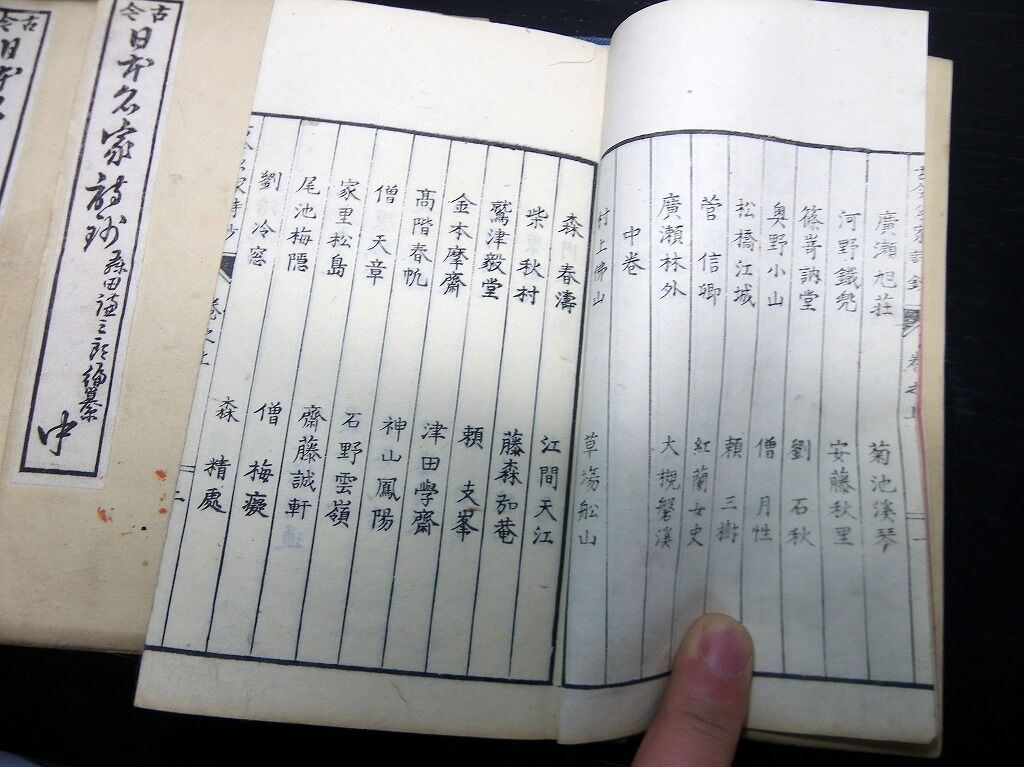 古今
日本名家詩鈔
森田謙三郎編纂
中
廣瀬旭莊 菊池溪琴
河野鐵兜 安藤秋里
篠嵜訥堂 劉石秋
奥野小山 僧月性
松橋江城 頼三樹
菅信卿 紅蘭女史
廣瀬林外 大槻磐溪
中卷
村上佛山 草場船山
森春濤 江間天江
柴秋村 藤森弘菴
鷲津毅堂 頼支峯
金本摩齋 津田學齋
髙階春帆 神山鳳陽
僧天章 石野雲嶺
家里松島 齋藤誠軒
尾池梅隠 僧梅癡
劉冷窓 森精處